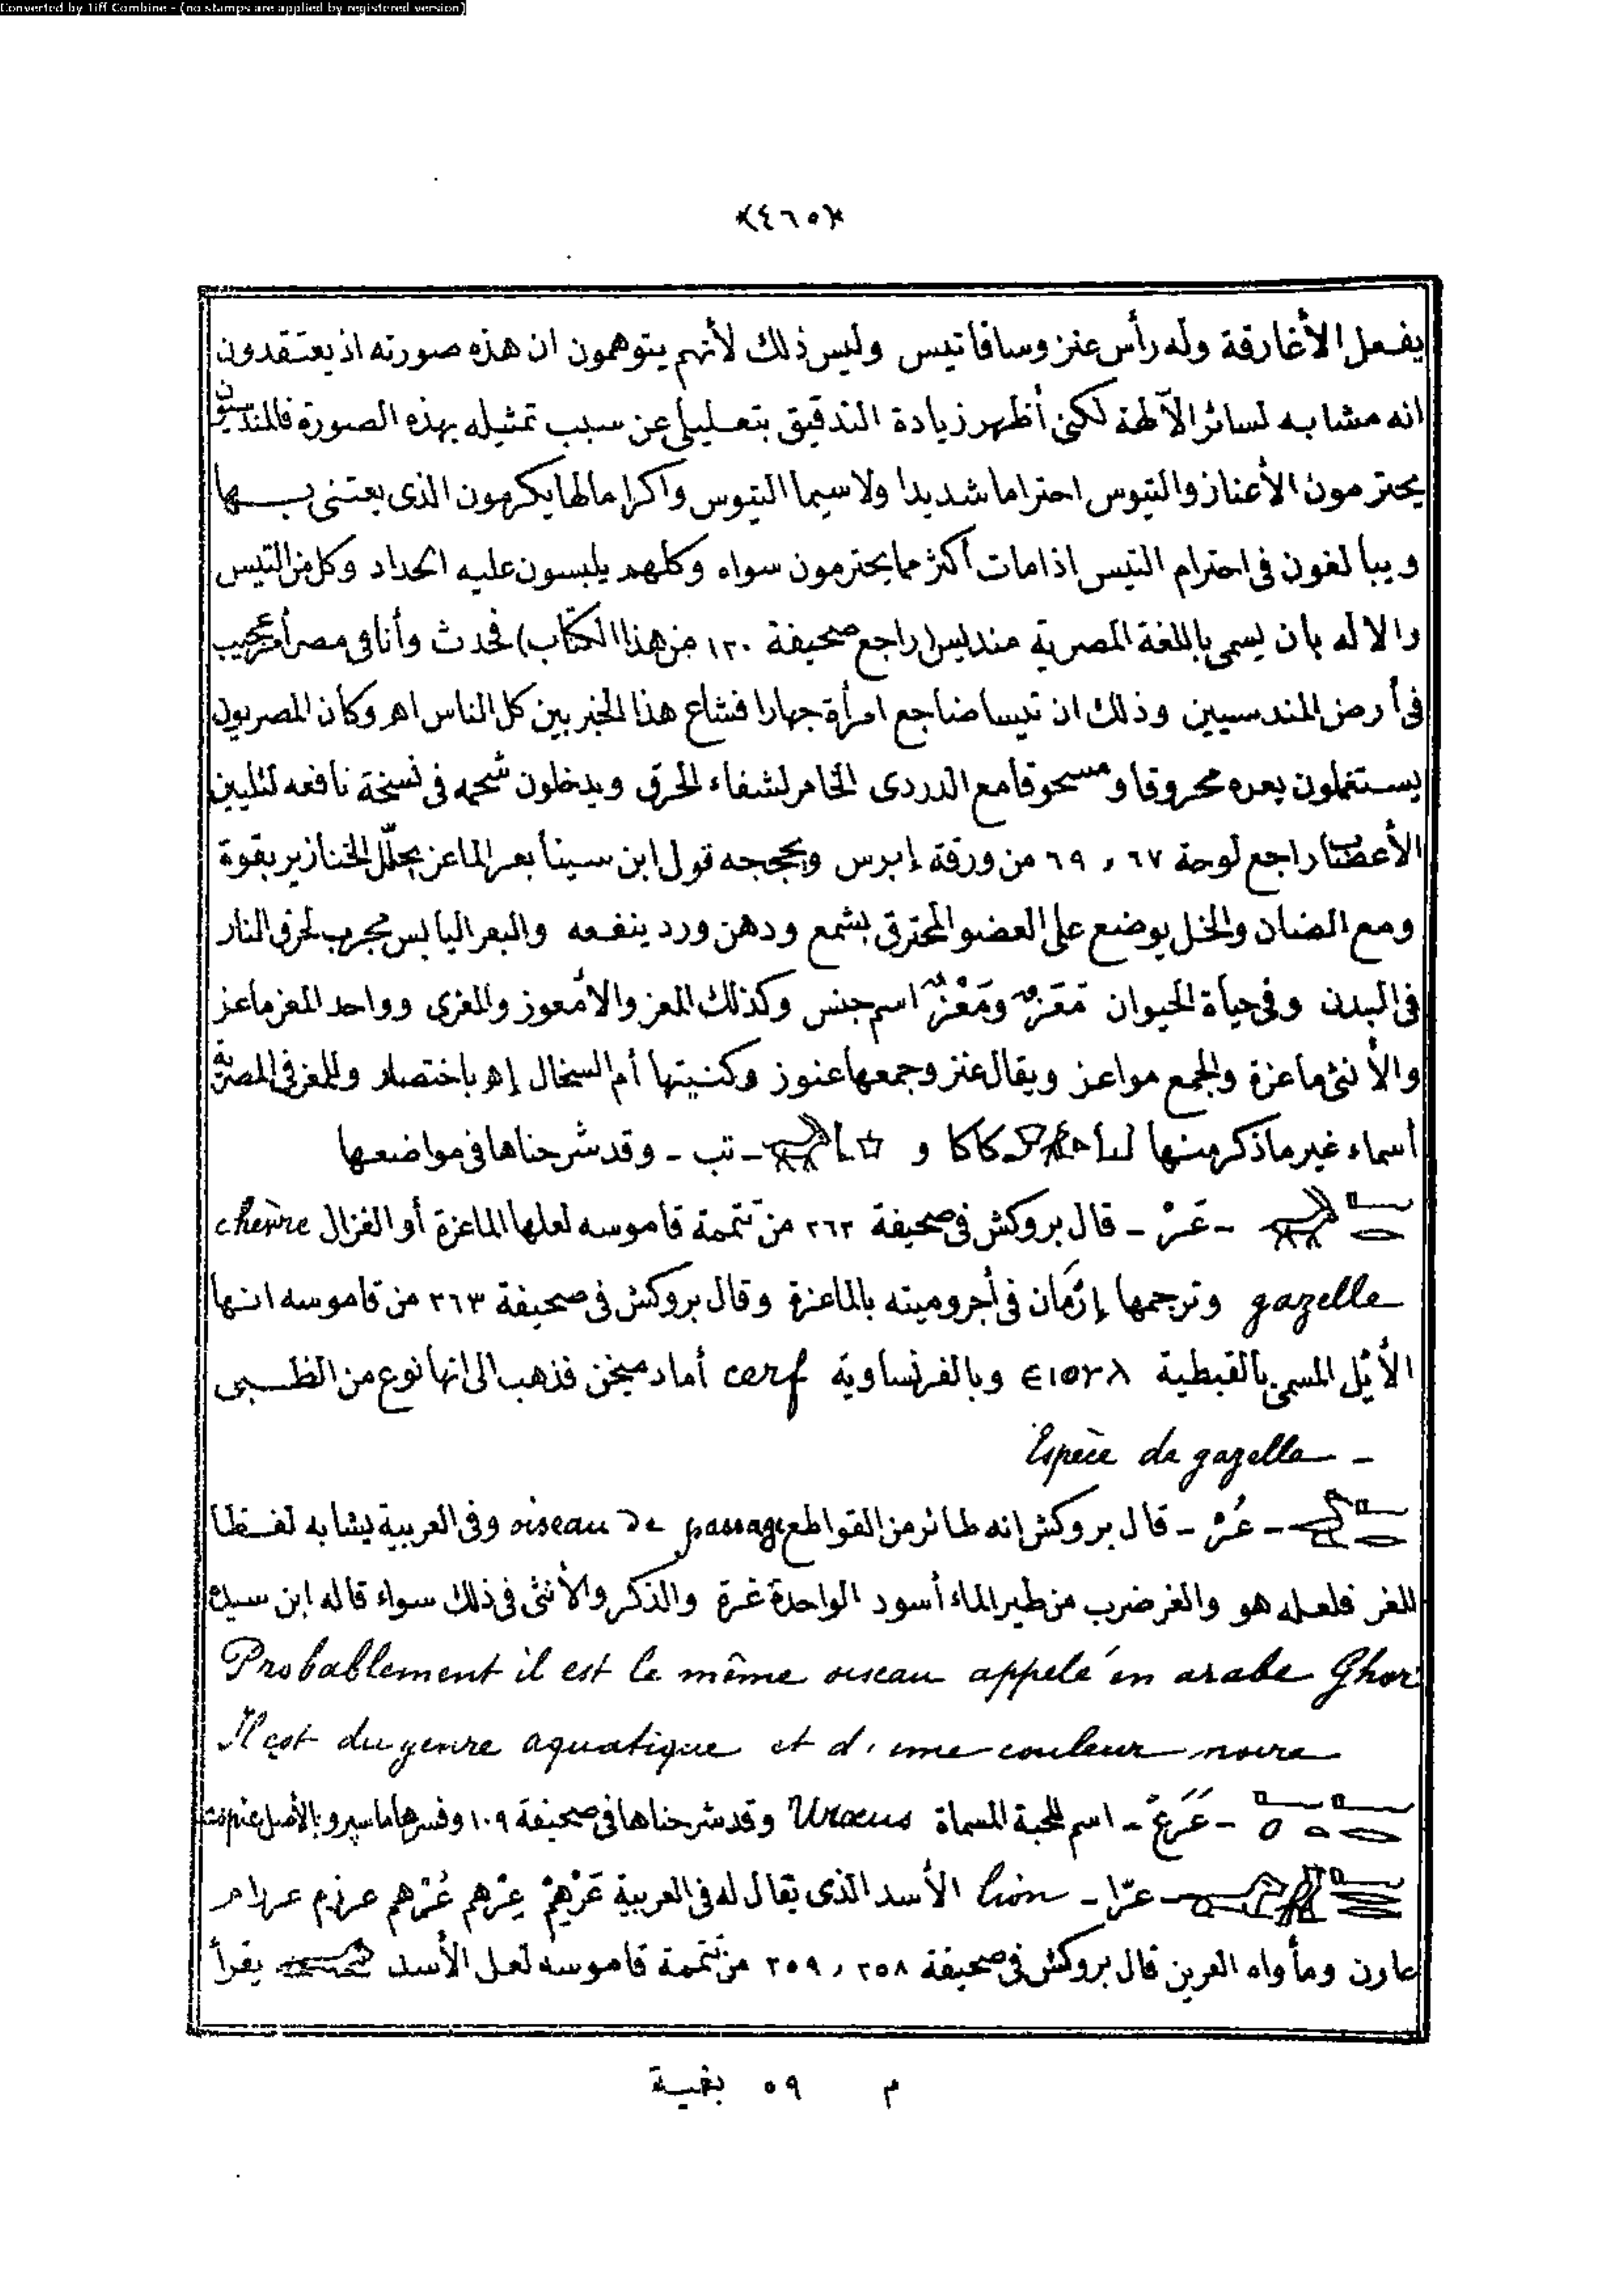 Converted by Tiff Combine - (no stamps are applied by registered version)
﴿٤٦٥﴾
يفعل الأغارقة وله رأس عنز وساقا تيس وليس ذلك لأنهم يتوهمون ان هذه صورته اذ يعتقدون
انه مشابه لسائر الآلهة لكنى أظهر زيادة التدقيق بتعليلى عن سبب تمثيله بهذه الصورة فالمنديسيون
يحترمون الأعناز والتيوس احتراما شديدا ولا سيما التيوس واكراما لها يكرمون الذى يعتنى بها
ويبالغون فى احترام التيس اذا مات أكثر مما يحترمون سواه وكلهم يلبسون عليه الحداد وكل من التيس
والاله بان يسمى باللغة المصرية منديس (راجع صحيفة ١٣٠ من هذا الكتاب) فحدث وأنا فى مصر أمر عجيب
فى أرض المندسيين وذلك ان تيسا ضاجع امرأة جهارا فشاع هذا الخبر بين كل الناس اهـ وكان المصريون
يستعملون بعره محروقا ومسحوقا مع الدردى الخام لشفاء الحرق ويدخلون شحمه فى نسخة نافعه لتليين
الأعضا راجع لوحة ٦٧ و ٦٩ من ورقة إبرس وبججه قول ابن سينا بعر الماعز يحلّل الخنازير بقوة
ومع الضان والخل يوضع على العضو المحترق بشمع ودهن ورد ينفعه والبعر اليابس مجرب لحرق النار
فى البدن وفى حياة الحيوان مَعَزٌ ومَعْزٌ اسم جنس وكذلك المعز والأمعوز والمعزى وواحد المعز ماعز
والأنثى ماعزة والجمع مواعز ويقال عنز وجمعها عنوز وكنيتها أم السخال إهـ باختصار وللمعز فى المصرية
أسماء غير ما ذكر منها كاكا و ـ تب ـ وقد شرحناها فى مواضعها
ـ عَرْ ـ قال بروكش فى صحيفة ٢٦٣ من تتمة قاموسه لعلها الماعزة أو الغزال chèvre
gazelle وترجمها إرْمَان فى أجروميته بالماعزة وقال بروكش فى صحيفة ٢٦٣ من قاموسه انها
الأيّل المسمى بالقبطية ⲉⲓⲟⲩⲗ وبالفرنساوية cerf أما دميخن فذهب الى انها نوع من الظبى
Espèce de gazelle ـ
ـ عُرْ ـ قال بروكش انه طائر من القواطع oiseau de passage وفى العربية يشابه لفظا
للغر فلعله هو والغر ضرب من طير الماء أسود الواحدة غرة والذكر والأنثى فى ذلك سواء قاله ابن سيده
Probablement il est le même oiseau appelé en arabe Ghor
Il est du genre aquatique et d'une couleur noire
ـ عَرَعْ ـ اسم للحية المسماة Uræus وقد شرحناها فى صحيفة ١٠٩ وفسرها ماسپرو بالأصل
ـ عرّا ـ lion الأسد الذى يقال له فى العربية عَرْهَمْ عِرْهم عُرْهم عرزم عرام
عارن ومأواه العرين قال بروكش فى صحيفة ٢٥٨ و ٢٥٩ من تتمة قاموسه لعل الأسد يقرأ
م ٥٩ بغية